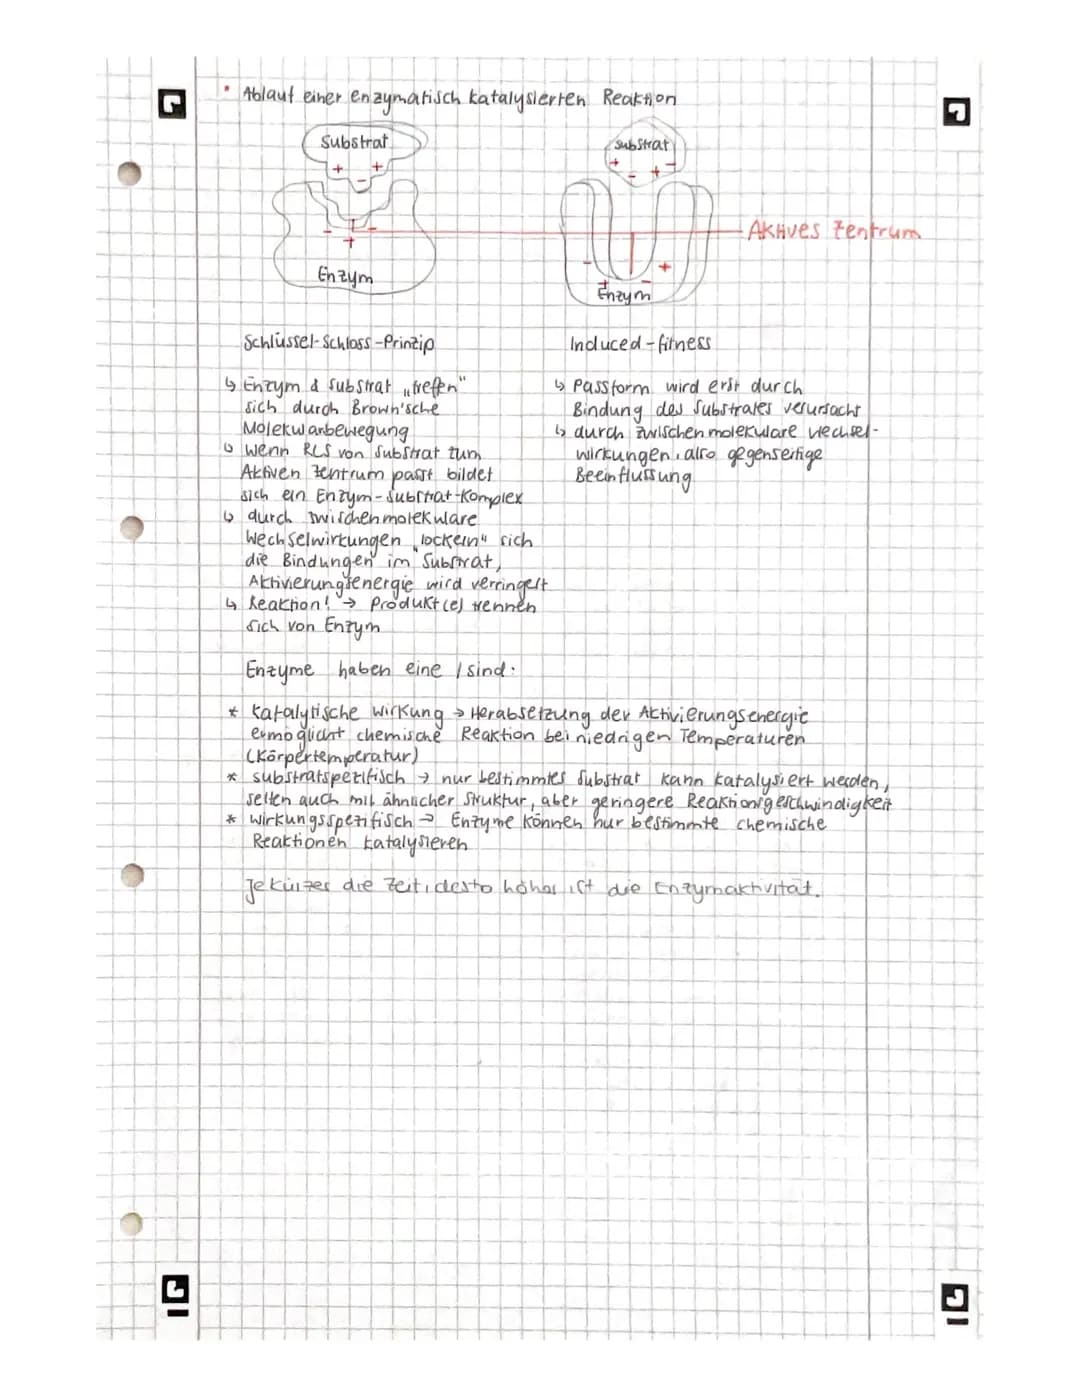 • Ablauf einer enzymatisch katalysierten Reaktion
Substrat
+ +
-
- - -
+
Enzym
Substrat
+ -
- +
- +
+ -
Enzym
Aktives Zentrum
Schlüssel-Schloss-Prinzip
↳ Enzym & Substrat „treffen"
sich durch Brown'sche
Molekularbewegung
↳ wenn RLS von Substrat zum
Aktiven Zentrum passt bildet
sich ein Enzym-Substrat-Komplex
↳ durch zwischenmolekulare
Wechselwirkungen „lockern" sich
die Bindungen im Substrat,
Aktivierungsenergie wird verringelt
↳ Reaktion! → Produkt(e) trennen
sich von Enzym
Induced-fitness
↳ Passform wird erst durch
Bindung des Substrates verursacht
↳ durch zwischenmolekulare Wechsel-
wirkungen, also gegenseitige
Beeinflussung
Enzyme haben eine / sind:
* katalytische Wirkung → Herabsetzung der Aktivierungsenergie
ermöglicht chemische Reaktion bei niedrigen Temperaturen
(Körpertemperatur)
* substratspezifisch → nur bestimmtes Substrat kann katalysiert werden,
selten auch mit ähnlicher Struktur, aber geringere Reaktionsgeschwindigkeit
* wirkungsspezifisch → Enzyme können nur bestimmte chemische
Reaktionen katalysieren
Je kürzer die Zeit, desto höher ist die Enzymaktivität.